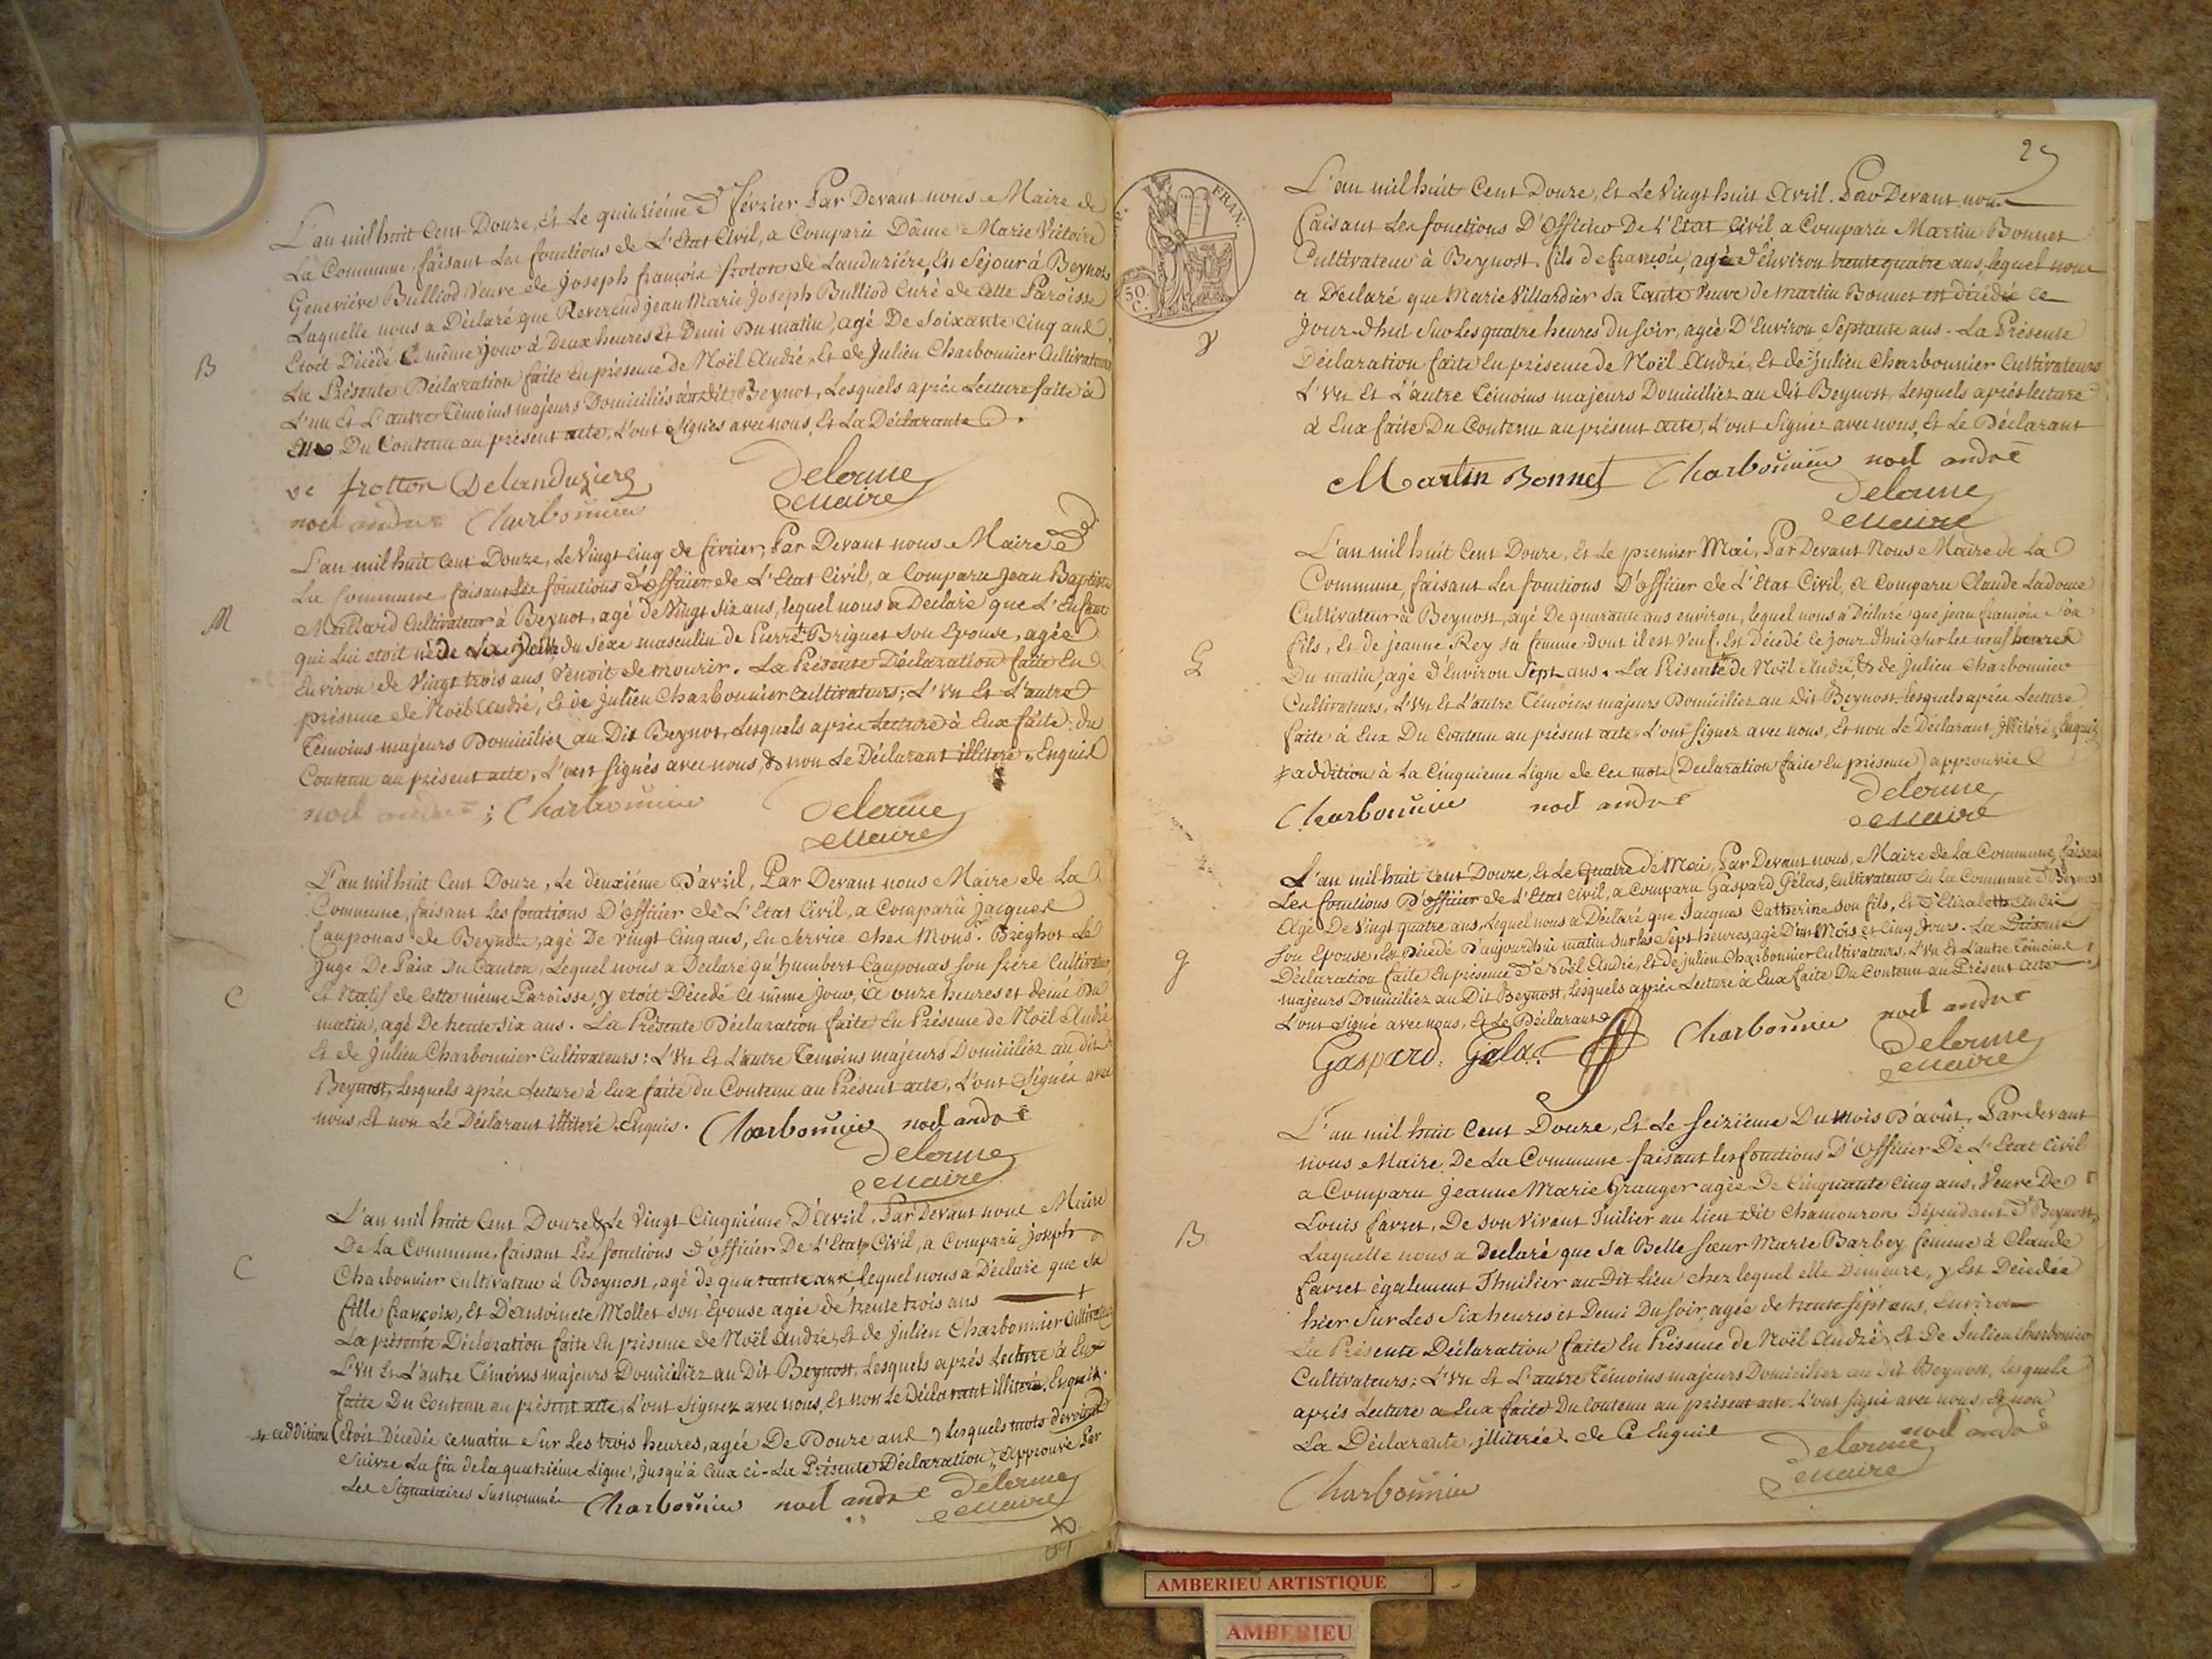 B
L'an mil huit Cent Douze, Et Le quinziéme De février Par Devant nous Maire de
La Commune, faisant Les fonctions de L'Etat Civil, a Comparû Dâme Marie Victoire
Geneviéve Bulliod Veuve de Joseph françois froton de Landuziére, En Séjour à Beynost
Laquelle nous a Déclaré que Reverend jean Marie Joseph Bulliod Curé de Cette Paroisse
Etoit Décédé Ce même jour à Deux heures et Demi Du matin, agé De Soixante Cinq ans
La Présente Déclaration faite En présence de Noël André, Et de Julien Charbonnier Cultivateurs
L'un Et L'autre Témoins majeurs Domiciliés au dit Beynost, Lesquels après Lecture faite à
Eux Du Contenu au présent acte, L'ont Signés avec nous, Et La Déclarante.
ve frotton Delanduziere Delorme
Maire
noel andré Charbonnier
M
L'an mil huit Cent Douze, Le Vingt Cinq de février, Par Devant nous Maire de
La Commune faisant Les fonctions d'Officier de L'Etat Civil, a Comparu Jean Baptiste
Maillard Cultivateur à Beynost, agé de Vingt Six ans, lequel nous a Déclaré que L'Enfant
qui Lui etoit né de Six jours du Sexe masculin de Pierrette Briguet Son Epouse, agée
Environ de Vingt trois ans Venoit de mourir. La Présente Déclaration faite En
présence de Noël André, Et de Julien Charbonnier Cultivateurs; L'un Et L'autre
Témoins majeurs Domiciliez au Dit Beynost, Lesquels après Lecture à Eux faite du
Contenu au présent acte, L'ont Signés avec nous, & non Le Déclarant illiteré, Enquis
noel andré ; Charbonnier Delorme
Maire
C
L'an mil huit Cent Douze, Le deuxiéme D'avril, Par Devant nous Maire de La
Commune, faisant Les fonctions D'officier de L'Etat Civil, a Comparû Jacques
Cauponas de Beynost, agé De Vingt Cinq ans, En Service chez Mons. Breghot Le
Juge De Paix Du Canton, Lequel nous a Declaré qu'humbert Cauponas Son frére Cultivateur
Et Natif de Cette même Paroisse, y etoit Décédé Ce même Jour, à onze heures et demi Du
matin, agé De trente Six ans. La Présente Déclaration faite En Présence de Noël André
Et de Julien Charbonnier Cultivateurs: L'un Et L'autre Temoins majeurs Domiciliez au dit
Beynost, Lesquels aprés Lecture à Eux faite du Contenu au Présent acte, L'ont Signée avec
nous, Et non Le Déclarant illiteré, Enquis. Charbonnier noel andré
Delorme
Maire
C
L'an mil huit Cent Douze, & Le Vingt Cinquiéme D'Avril, Par Devant nous Maire
De La Commune, faisant Les fonctions d'officier De L'Etat Civil, a Comparû Joseph
Charbonnier Cultivateur à Beynost, agé de quarante ans, lequel nous a Déclaré que Sa
fille françoise, Et D'antoinete Mollet Son Epouse agée de trente trois ans +
La présente Déclaration faite En présence de Noël André, Et de Julien Charbonnier Cultivateurs
L'un Et L'autre Témoins majeurs Domiciliez au Dit Beynost, Lesquels aprés Lecture à Eux
faite Du Contenu au présent acte, L'ont Signez avec nous, Et non Le Déclarant illiteré, Enquis.
+ addition (etoit Décédée ce matin Sur Les trois heures, agée De Douze ans) lesquels mots devront
Suivre La fin de la quatriéme Ligne, jusqu'à Ceux ci-La Présente Déclaration, Approuvé Par
Les Signataires Susnommés Charbonnier noel andré Delorme
Maire
25
FRAN.
50
C.
L'an mil huit Cent Douze, Et Le Vingt huit Avril. Par Devant nous
faisant Les fonctions D'Officier De L'Etat Civil a Comparu Martin Bonnet
Cultivateur à Beynost, fils de françois, agé d'Environ trente quatre ans, lequel nous
a Déclaré que Marie Villardier Sa Tante Veuve de martin Bonnet est décédée Ce
jour d'hui Sur Les quatre heures du Soir, agée D'Environ Septante ans. La Présente
Déclaration faite En présence de Noël André, Et de Julien Charbonnier Cultivateurs
L'un Et L'autre Témoins majeurs Domiciliez au dit Beynost, Lesquels aprés lecture
à Eux faite Du Contenu au présent acte, L'ont Signez avec nous, Et Le Déclarant
Martin Bonnet Charbonnier noel andré
Delorme
Maire
L'an mil huit Cent Douze, Et Le premier Mai, Par Devant Nous Maire de La
Commune, faisant Les fonctions D'officier de L'Etat Civil, a Comparu Claude Ladome
Cultivateur à Beynost, agé De quarante ans environ, lequel nous a Déclaré que jean françois Son
fils, Et de jeanne Rey sa femme dont il est Veuf, Est Décédé Ce jour d'hui Sur Les neuf heures
Du matin, agé d'Environ Sept ans. La Présente de Noël André, & de Julien Charbonnier
Cultivateurs, L'un Et L'autre Témoins majeurs Domiciliez au Dit Beynost, Lesquels aprés Lecture
faite à Eux Du Contenu au présent acte, L'ont Signez avec nous, Et non Le Déclarant Illiteré, Enquis
+ addition à La Cinquieme Ligne de Ces mots (Declaration faite En présence) approuvée
Charbonnier noel andré Delorme
Maire
g
L'an mil huit Cent Douze, Et Le Quatre de Mai, Par Devant nous, Maire de La Commune, faisant
Les fonctions D'officier de L'Etat Civil, a Comparu Gaspard Gelas, Cultivateur En La Commune de Beynost
Agé De Vingt quatre ans, Lequel nous a Déclaré que Jacques Catherine Son fils, Et D'Elizabeth André
Son Epouse, Est Décédé D'aujourd'hui matin Sur les Sept heures, agé D'un Mois et Cinq Jours. La Présente
Déclaration faite En présence De Noël André, Et de julien Charbonnier Cultivateurs, L'un Et L'autre Témoins
majeurs Domiciliez au Dit Beynost, Lesquels aprés Lecture à Eux faite Du Contenu au Présent acte
L'ont Signé avec nous, Et Le Déclarant
Gaspard. Gelas Charbonnier noel andré
Delorme
Maire
B
L'an mil huit Cent Douze, Et Le Seiziéme Du Mois D'août, Par devant
nous Maire De La Commune faisant les fonctions D'Officier De L'Etat Civil
a Comparu Jeanne Marie Granger agée De Cinquante Cinq ans, Veuve De
Louis favret, De son Vivant Tuilier au Lieu dit Chamouron Dépendant De Beynost,
Laquelle nous a Declaré que Sa Belle Sœur Marie Barbey femme à Claude
favret également Thuilier au Dit Lieu chez lequel elle Demeure, y Est Décédée
hier Sur Les Six heures et Demi Du Soir, agée de trente Sept ans, Environ
La Présente Déclaration faite En Présence de Noël André, Et De Julien Charbonnier
Cultivateurs; L'un Et L'autre Témoins majeurs Domiciliez au Dit Beynost, Lesquels
aprés Lecture à Eux faite Du Contenu au présent acte, L'ont Signé avec nous, Et non
La Déclarante, illiterée De Ce Enquis
noel andré
Delorme
Maire
Charbonnier
AMBERIEU ARTISTIQUE
AMBERIEU